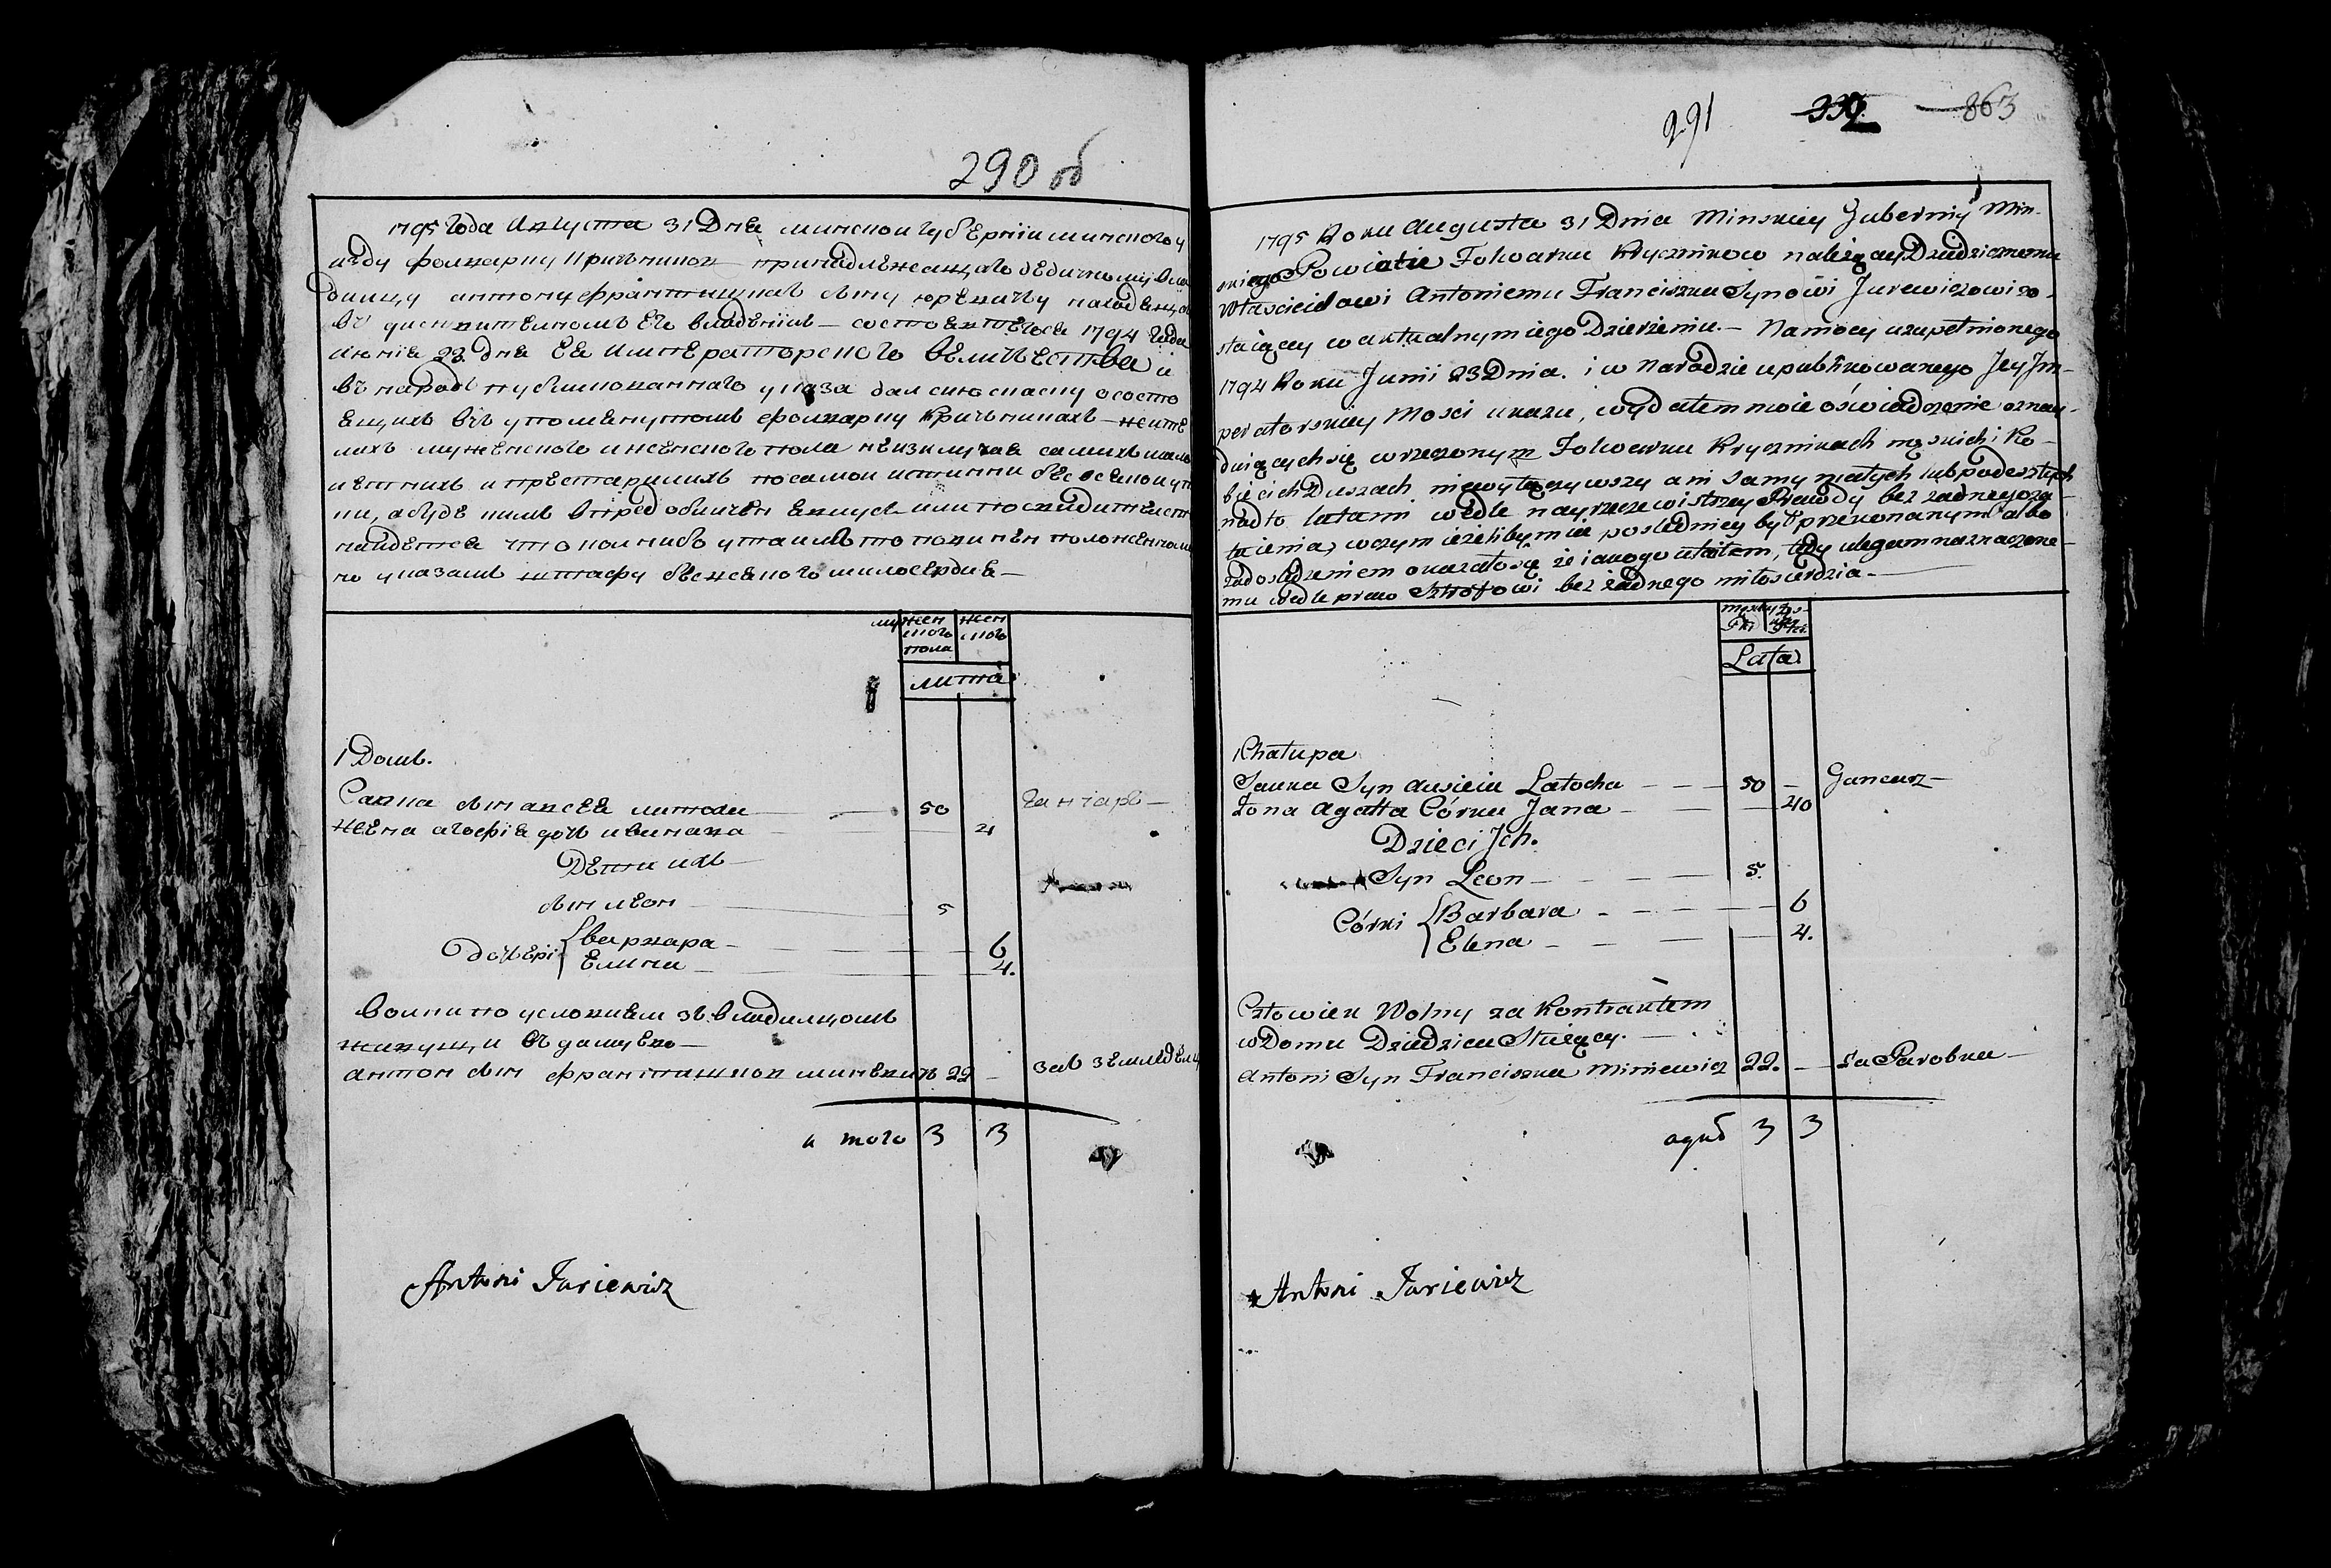 290 об
1795 года Августа 31 Дня минской губерніи минского у
езду фольварку Кричником принадлежащаго дедичному вла
дельцу антону францишкав сыну юревичу находящагося
въ дисципительномъ его владеніи — состоявшегося 1794 года
июня 23 дня Ея императорского величества и
въ народъ публикованнаго указа дал сию сказку о состо
ящихъ въ упомянутомъ фольварку Кричниках — жите
лихъ мужеского и женского пола не изключая самихъ мало
летнихъ и престарелихъ по самой истинни без всякой ут
ки, а буде кемъ впред обличен явлусь или по свидительст
найдется что кого либо утаилъ то повинен положенному
по указамъ штрафу без всякого милосердия —
мужеского пола
женского
лита
1 Домъ.
Савка сын авсея латохи — 50 ганчаръ —
Жена агафія доч ивана 4
Дети ихъ —
сын леон — 5
дочери варвара — 6
Елина — 4.
волни по условием зъ владилцомъ
живущи въ дому его —
антон сын францишков миневич 22 — за земледелц
и того 3 3
Antoni Juriewicz
291 339 863
1795 Roku Augusta 31 Dnia Minskiey Jubernij Min-
skiego Powiatu Folwarku Krycznikow należący Dziedzicznemu
Włascicielowi Antoniemu Franciszka Synowi Jurewiczowi zo-
staiący w aktualnym iego Dzierżeniu. — Na mocy uzupełnionego
1794 Roku Junii 23 Dnia. i w Narodzie upublikowanego Jey Jm-
peratorskiey Mosci ukazu, wydałem moie oświadczenie o znay-
duiących się w rzeczonym Folwarku Krycznikach męskich i Ko-
biecich Duszach niewyłączywszy ani samy małych lub podeszłych
nadto latami wedle nayrzeczewistszey Prawdy bez żadnego za-
taienia, w czym ieżelibym na posledniey był przekonanym albo
za dosledzeniem okazało się że ianogo utaiłem, tedy ulegam naznaczone-
mu wedle praw Sztrofowi bez żadnego miłosierdzia. —
Męskiey Płci
Żenskiey Płci
Lata
1 Chałupa
Sauka Syn Ausieia Latocha — — — 50 — Gancarz —
Żona Agatta Córka Jana — — 40
Dzieci Jch.
Syn Leon — — — — 5.
Córki Barbara — — — 6
Elena — — — — 4.
Człowiek Wolny za Kontraktem
w Domu Dziedzica Służący. —
Antoni Syn Franciszka Miniewicz 22. — Za Parobka —
oguł 3 3
Antoni Juriewicz